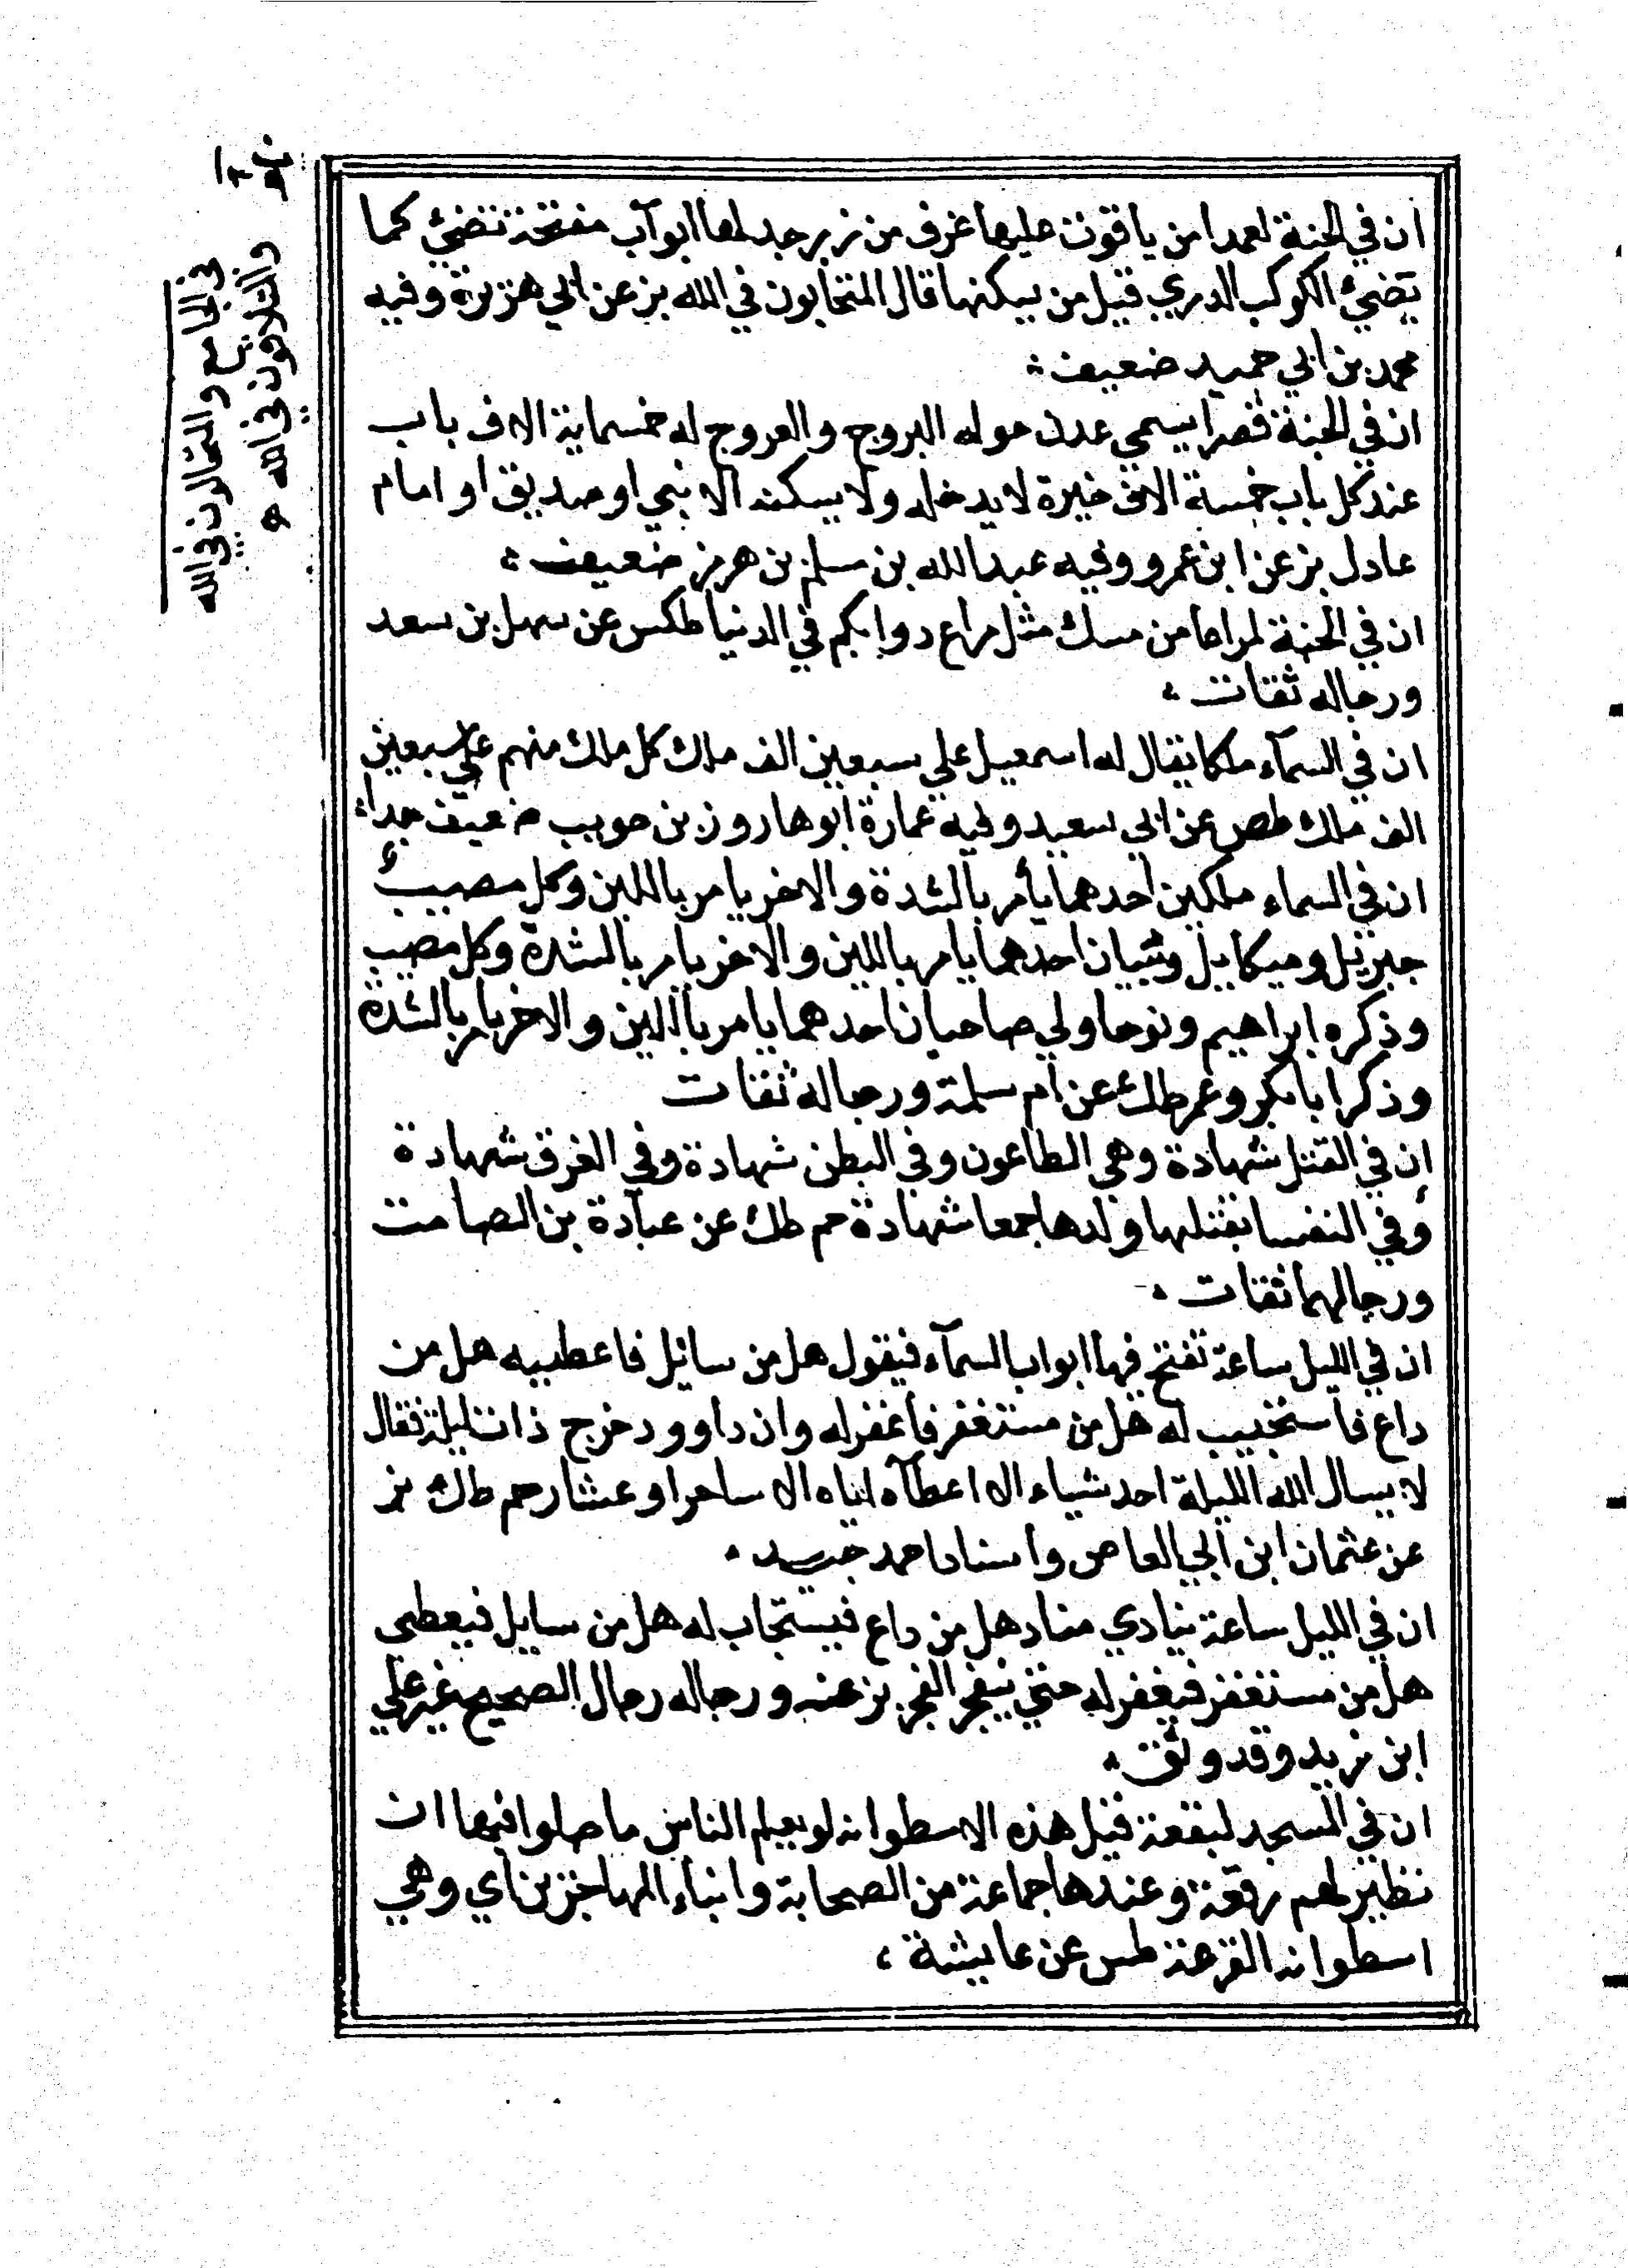 ان في الجنة لعمدا من ياقوت عليها غرف من زبرجد لها ابوآب مفتحة تضئ كما
يضئ الكوكب الدري قيل من يسكنها قال المتحابون في الله بز عن ابي هريرة وفيه
محمد بن ابي حميد ضعيف
ان في الجنة قصرا يسمي عدن حوله البروج والعروج له خمسماية الاف باب
عند كل باب خمسة الاف خيرة لا يدخله ولا يسكنه الا نبي او صديق او امام
عادل بز عن ابن عمرو وفيه عبد الله بن مسلم بن هرمز ضعيف
ان في الجنة لمراعا من مسك مثل مراع دوابكم في الدنيا طكس عن سهل بن سعد
ورجاله ثقات
ان في السمآء ملكا يقال له اسمعيل علي سبعين الف ملك كل ملك منهم علي سبعين
الف ملك طص عن ابي سعيد وفيه عمارة ابو هارون بن جويب ضعيف جدا
ان في السماء ملكين احدهما يأمر بالشدة والاخر يامر باللين وكل مصيب
جبريل وميكاييل ونبيان احدهما يامر باللين والاخر يامر بالشدة وكل مصيب
وذكره ابراهيم ونوحا ولي صاحبان احدهما يامر باللين والاخر يامر بالشدة
وذكر ابا بكر وعمر طك عن ام سلمة ورجاله ثقات
ان في القتل شهادة وهي الطاعون وفي البطن شهادة وفي الغرق شهادة
وفي النفسا يقتلها ولدها جمعا شهادة حم طك عن عبادة بن الصامت
ورجالهما ثقات
ان في الليل ساعة تفتح فيها ابواب السمآء فيقول هل من سائل فاعطيه هل من
داع فاستجيب له هل من مستغفر فأغفر له وان داوود خرج ذات ليلة فقال
لا يسال الله الليلة احد شياء الا اعطآه اياه الا ساحرا وعشار حم طك بز
عن عثمان ابن ابي العاص وأسناد احمد جيد
ان في الليل ساعة ينادي مناد هل من داع فيستجاب له هل من سايل فيعطي
هل من مستغفر فيغفر له حتي ينفجر الفجر بز عنه ورجاله رجال الصحيح غير علي
ابن زيد وقد وثق
ان في المسجد لبقعة قبل هذه الاسطوانه لو يعلم الناس ما صلوا فيها ان
تطير لهم رقعة وعندها جماعة من الصحابة وابناء المهاجرين اي وهي
اسطوانه القرعة طس عن عايشة
في الجامع والمتجالسون في الله
والمتلاقون في الله